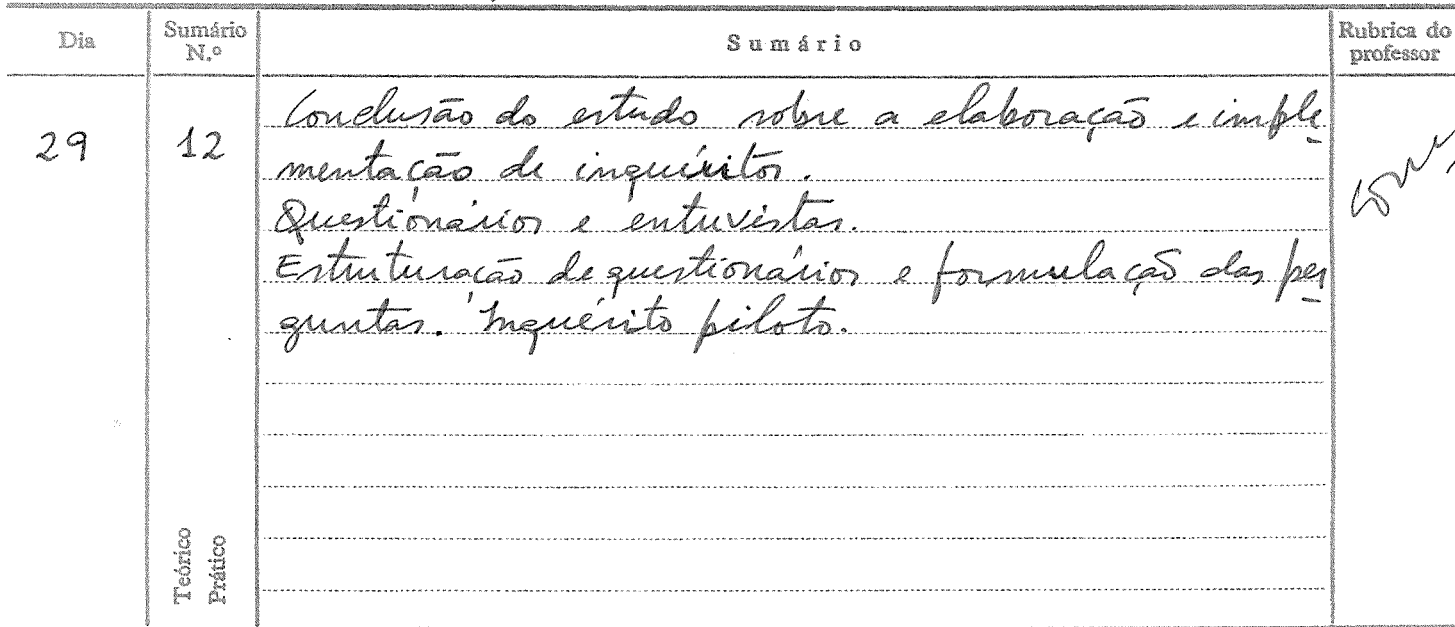 Dia
Sumário N.º
Sumário
Rubrica do professor
29
12
Conclusão do estudo sobre a elaboração e imple
mentação de inquéritos.
Questionários e entrevistas.
Estruturação de questionários e formulação das per
guntas. Inquérito piloto.
Teórico
Prático